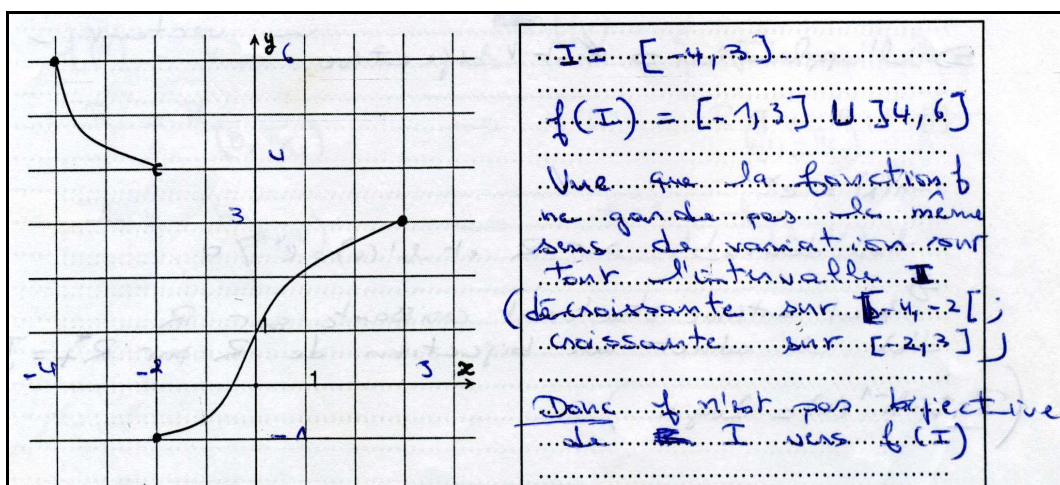 y
6
4
3
-4
-2
1
3
x
-1
I = [-4,3]
f(I) = [-1,3] U ]4,6]
Vue que la fonction f
ne garde pas le même
sens de variation sur
tout l'intervalle I
(décroissante sur [-4,-2[ ;
croissante sur [-2,3] )
Donc f n'est pas bijective
de I vers f(I)